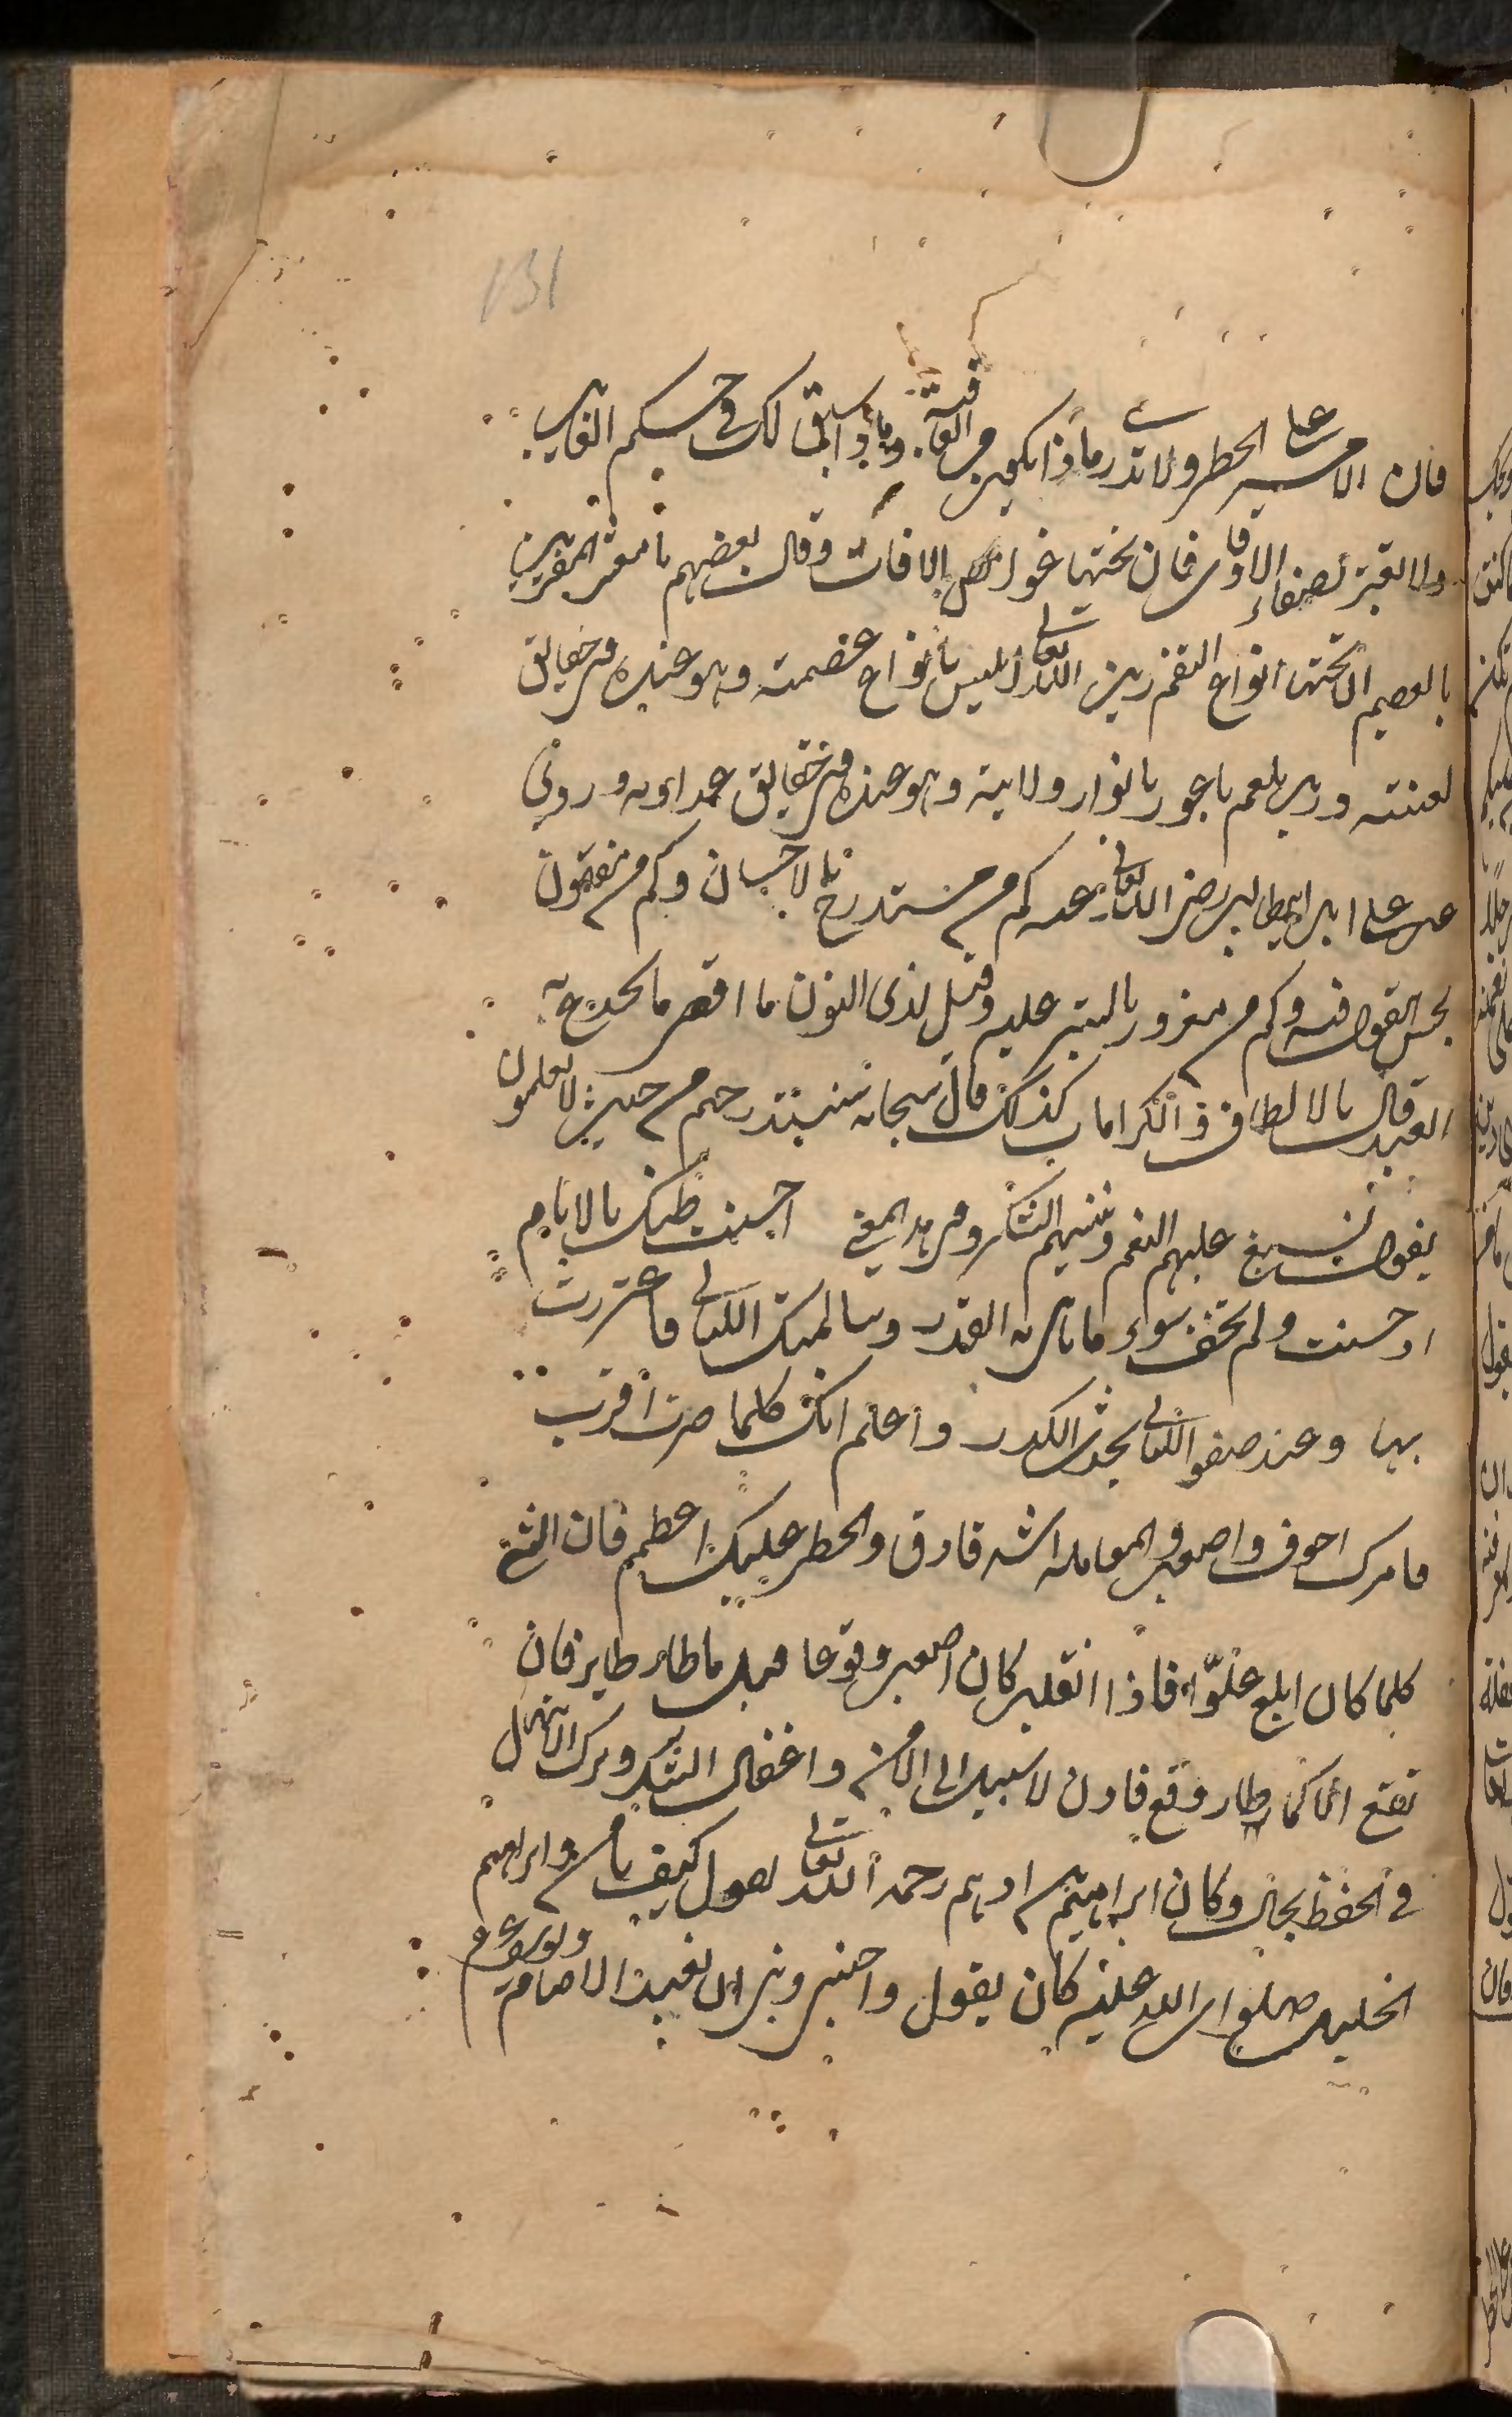 131
فان الامر على الخطر ولا تدر ماذا يكون من العاقبة وماذا سبق لك فى حكم الغايب
ولا تغتر بصفاء الاوقات فان تحتها غوامض الافات وقال بعضهم يا معشر المغترين
بالعصم ان تحتها انواع النقم زين الله تعالى ابليس بانواع عصمته وهو عنده من حقايق
لعنته وزين بلعم باعور بانوار ولايته وهو عنده من حقايق عداوته وروى
عن على ابن ابيطالب رضى الله تعالى عنه كم من مستدرج بالاحسان وكم من مفتون
بحسن القول فيه وكم من مغرور بالستر عليه وقيل لذى النون ما اقصى ما يخدع به
العبد قال بالالطاف والكرامات كذلك قال سبحانه سنستدرجهم من حيث لا يعلمون
يقول نسبغ عليهم النعم وننسيهم الشكر وفى هذا المعنى احسنت ظنك بالايام
اذ حسنت ولم تخف سوء ما ياتى به القدر وسالمتك الليالى فاغتررت
بها وعند صفو الليالى يحدث الكدر واعلم انك كلما صرت اقرب
فامرك اخوف واصعب والمعاملة اشد وادق والخطر عليك اعظم فان الشئ
كلما كان ابلغ علوّا فاذا انقلب كان اصعب وقوعا قيل ما طار طاير فان
تقع الا كما طار وقع فاذن لا سبيل الى الامن واغفال الشكر وترك الابتهال
فى الحفظ بحال وكان ابراهيم من ادهم رحمه الله تعالى يقول كيف تامن وابراهيم
الخليل صلوات الله عليه كان يقول واجنبنى وبنى ان نعبد الاصنام ويوسف ع م